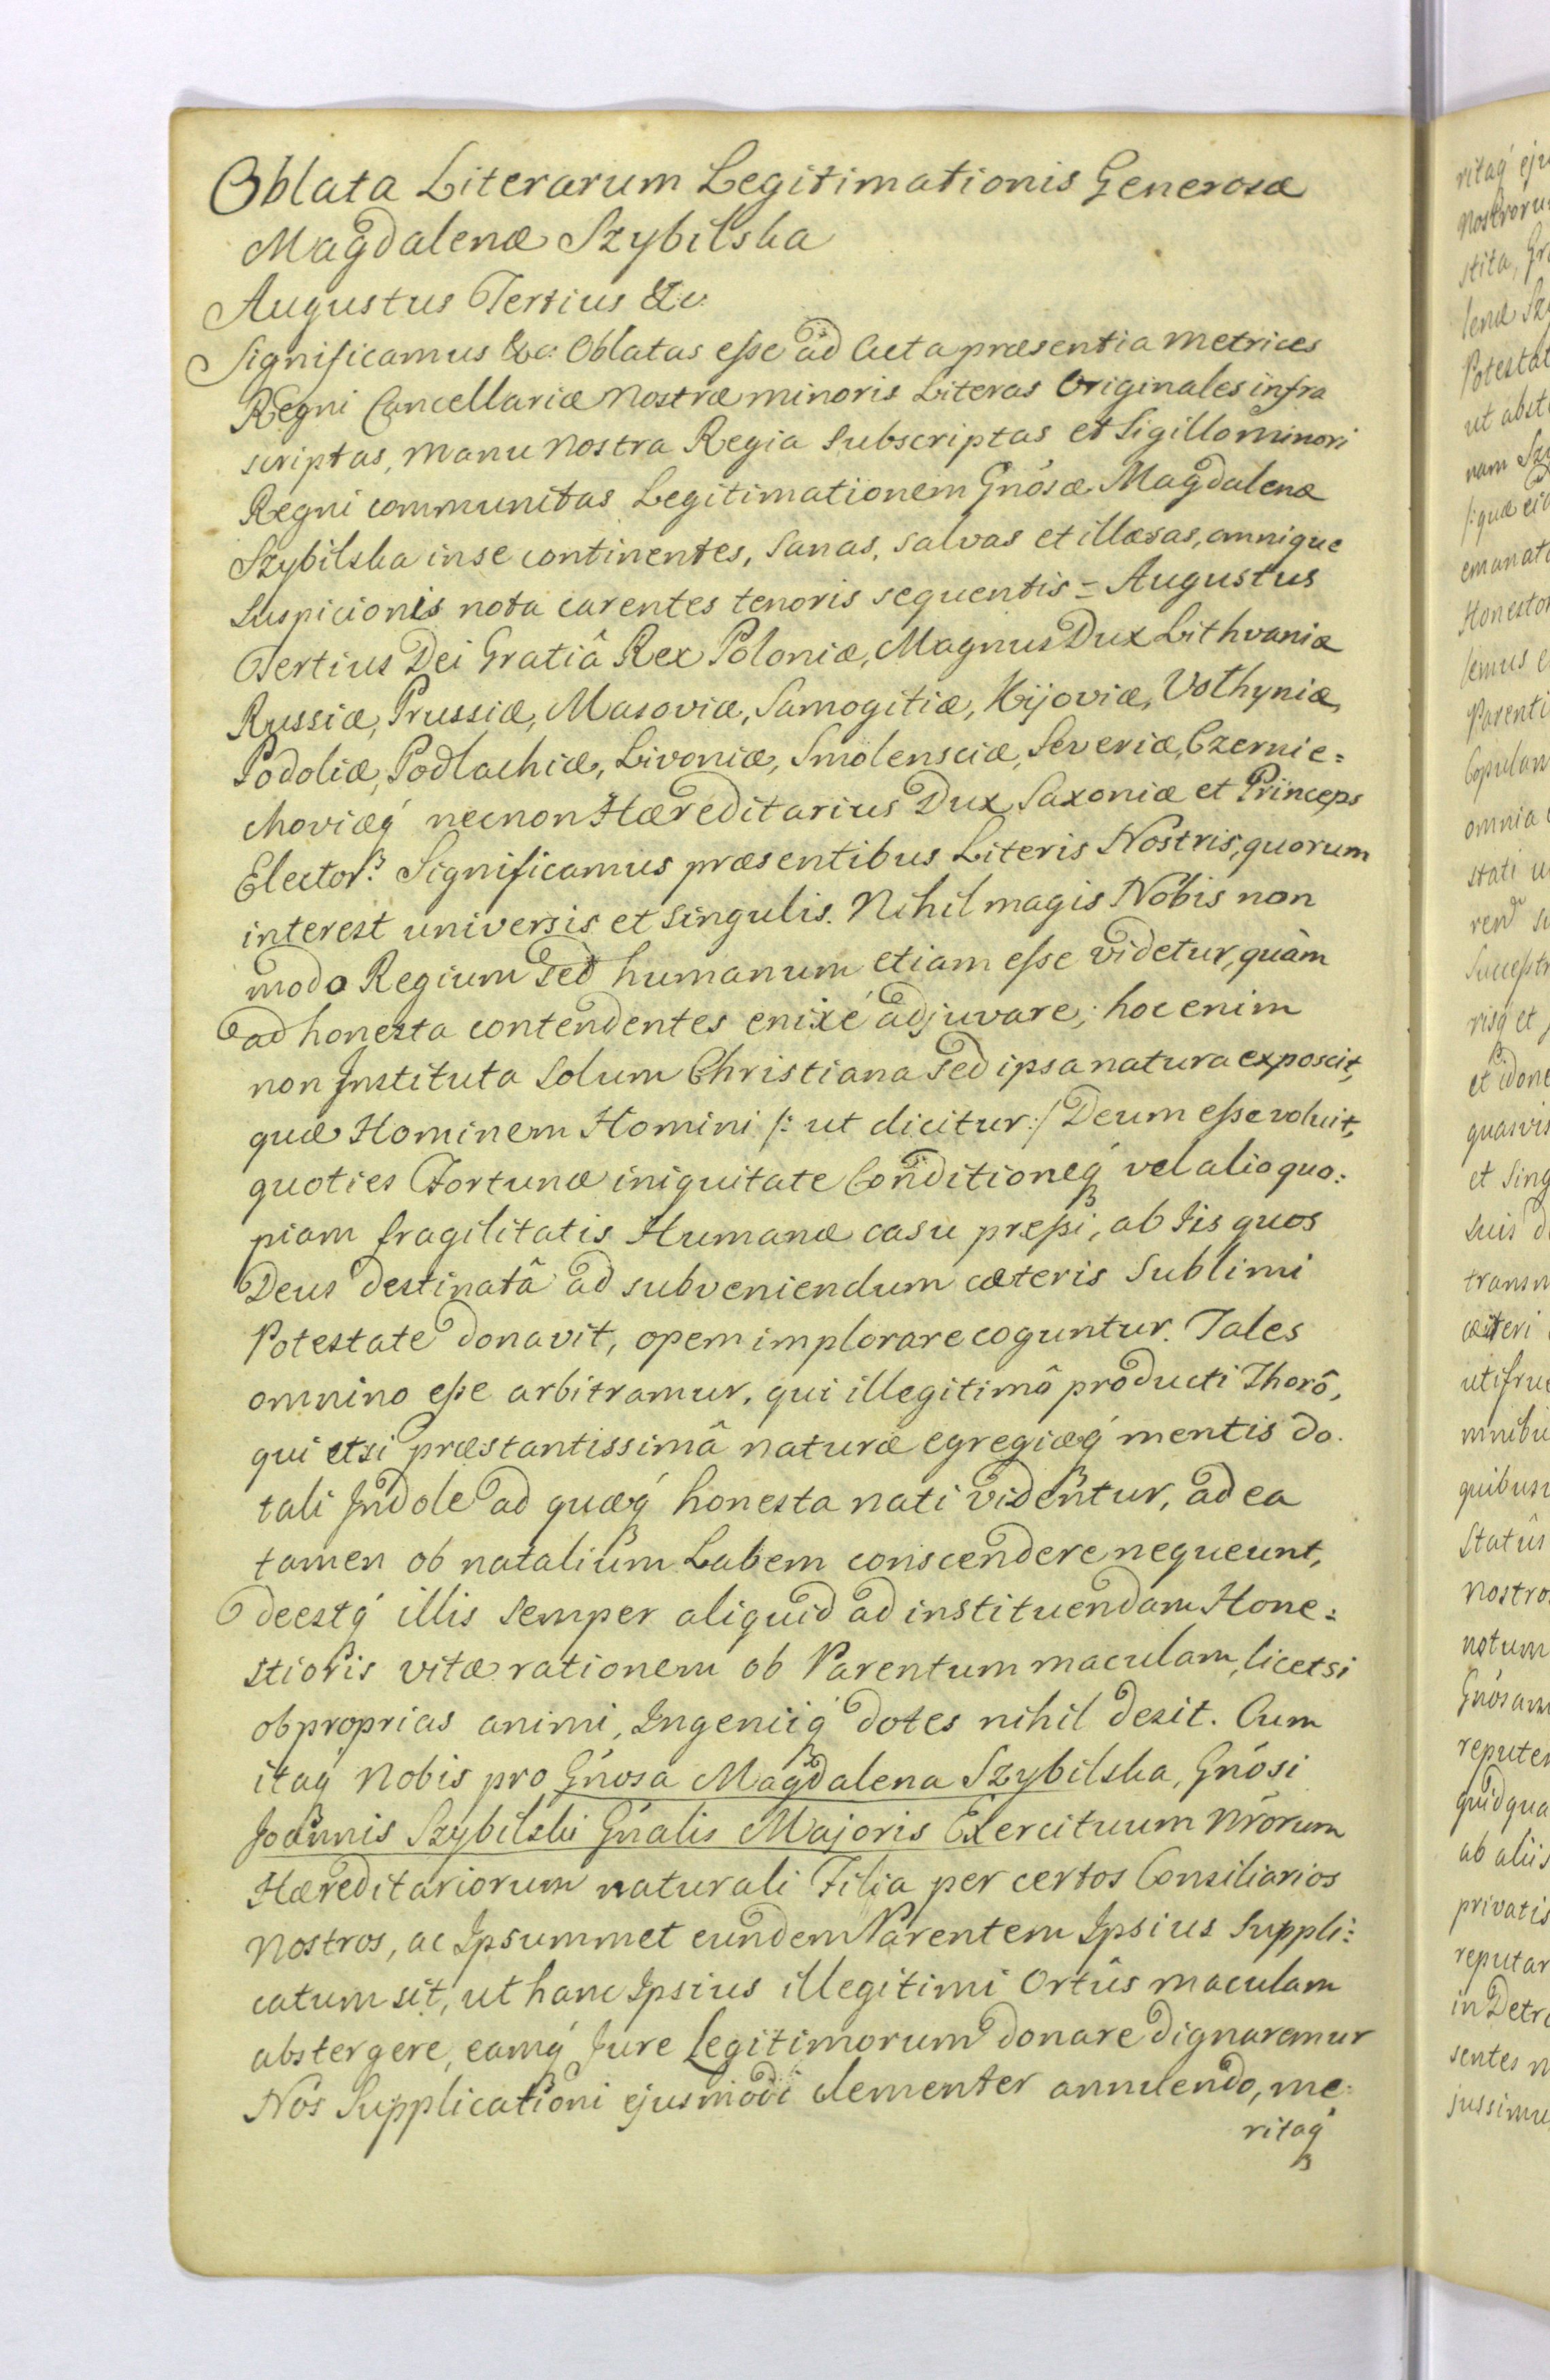 Oblata Literarum Legitimationis Generosæ
Magdalenæ Szybilska
Augustus Tertius &c:
Significamus &c: Oblatas esse ad Acta præsentia metrices
Regni Cancellariæ Nostræ minoris Literas Originales infra
scriptas, manu Nostra Regia Subscriptas et Sigillo minori
Regni communitas Legitimationem Gnosæ Magdalenæ
Szybilska in se continentes, Sanas, salvas et illæsas, omnique
Suspicionis nota carentes tenoris sequentis = Augustus
Tertius Dei Gratiâ Rex Poloniæ, Magnus Dux Lithvaniæ
Russiæ, Prussiæ, Masoviæ, Samogitiæ, Kijoviæ, Volhyniæ,
Podoliæ, Podlachiæ, Livoniæ, Smolensciæ, Severiæ, Czernie=
choviæq́ necnon Hæreditarius Dux Saxoniæ et Princeps
Elector: Significamus præsentibus Literis Nostris, quorum
interest universis et singulis. Nihil magis Nobis non
modo Regium sed humanum etiam esse videtur, quàm
ad honesta contendentes enixé adjuvare; hoc enim
non Instituta Solum Christiana sed ipsa natura exposcit,
quæ Hominem Homini /: ut dicitur :/ Deum esse voluit,
quoties Fortunæ iniquitate Conditioneq́ vel alio quo:
piam fragilitatis Humanæ casu præssi, ab Iis quos
Deus destinatâ ad subveniendum cæteris Sublimi
Potestate donavit, opem implorare coguntur. Tales
omnino esse arbitramur, qui illegitimô producti Thorô,
qui etsi præstantissimâ naturæ egregiæq́ mentis do.
tali Indole ad quæq́ honesta nati videntur, ad ea
tamen ob natalium Labem conscendere nequeunt,
deestq́ illis semper aliquid ad instituendam Hone:
stioris vitæ rationem ob Parentum maculam, licet si
ob proprias animi, Ingeniiq́ dotes nihil desit. Cum
itaq́ Nobis pro Gnosa Magdalena Szybilska, Gnosi
Joannis Szybilski Gnalis Majoris Exercituum Nrorum
Hæreditariorum naturali Filia per certos Consiliarios
Nostros, ac Ipsummet eundem Parentem Ipsius Suppli:
catum sit, ut hanc Ipsius illegitimi Ortûs maculam
abstergere, eamq́ Jure Legitimorum donare dignaremur
Nos Supplicationi ejusmodi clementer annuendo, me:
ritaq́